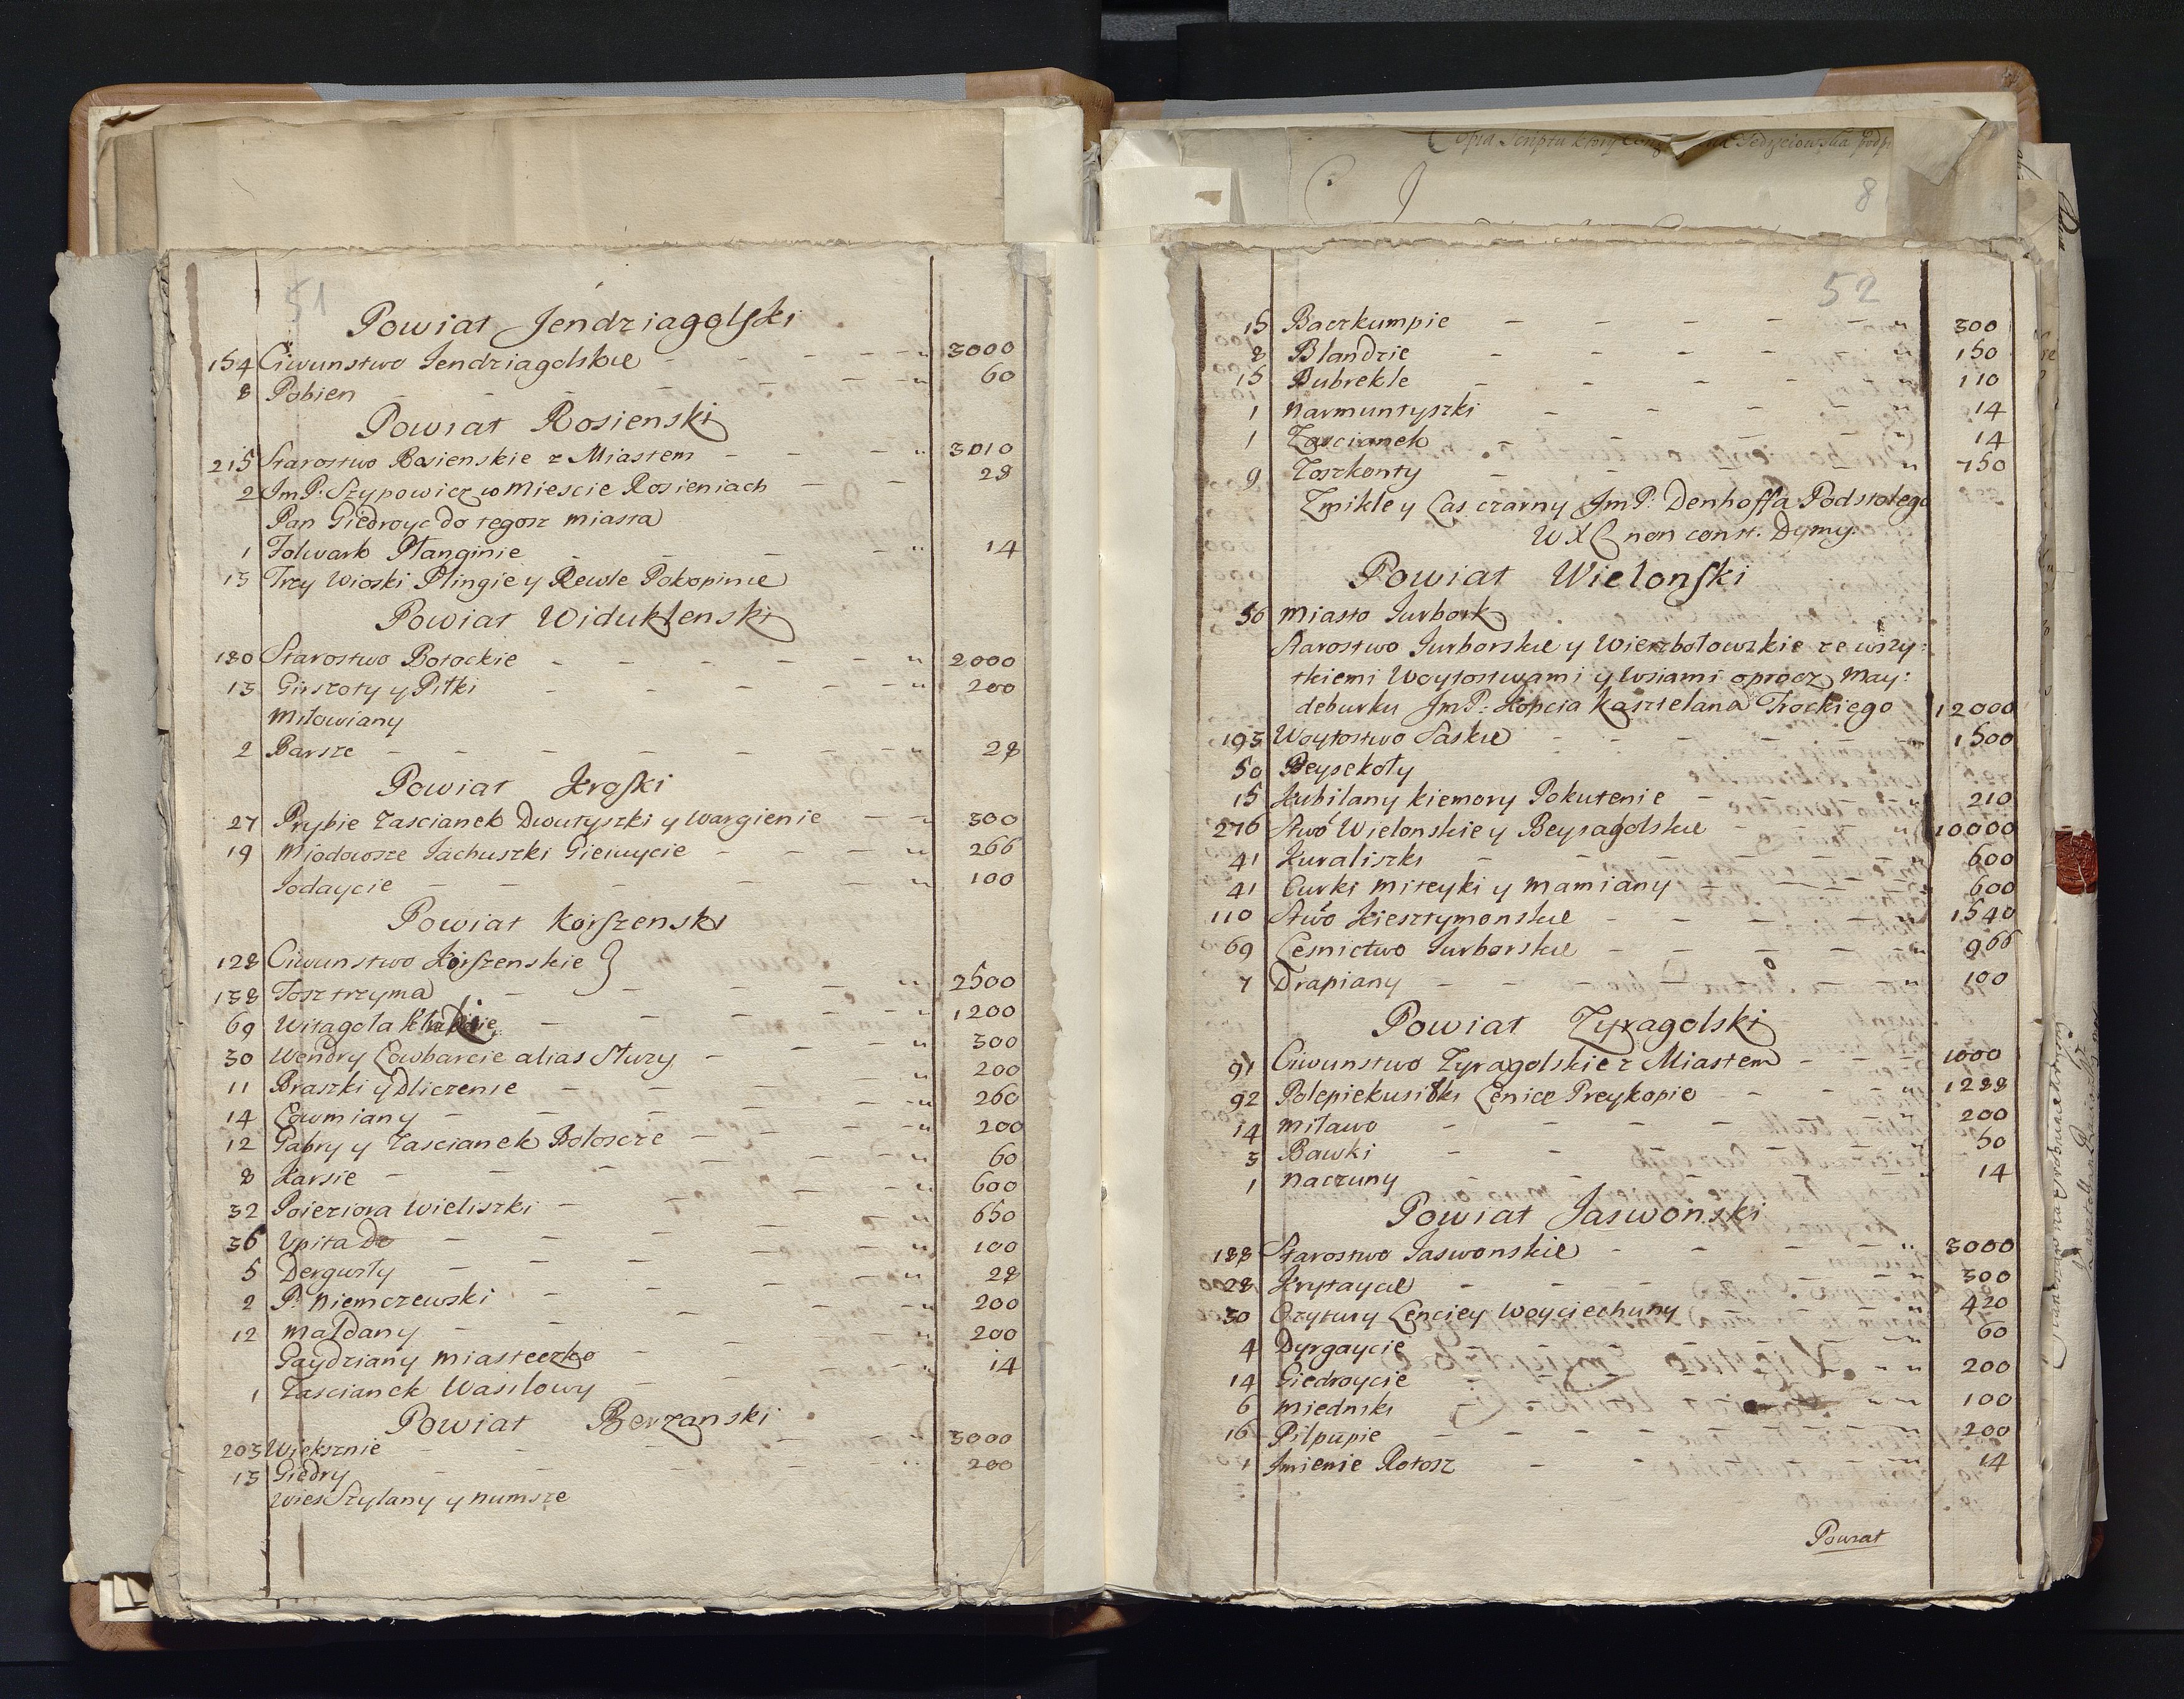 51
Powiat Jendziagolski
154 Ciwunstwo Jendziagolskie 3000
8 Pobien 60
Powiat Rosienski
215 Starostwo Rosienskie z Miastem 3010
2 JmP: Szypowicz w Miescie Rosieniach 28
Pan Giedroyc do tegosz miasta
1 Folwark Płanginie 14
15 Trzy Wioski Plingie y Rewle Pokopinie
Powiat Widuklenski
180 Starostwo Botockie 2000
15 Girszoty y Pitki 200
Miłowiany
2 Barsze 28
Powiat Kroski
27 Prybie Zascianek Dwutyszki y Wargienie 300
19 Miodowsze Jachuszki Gieiwycie 266
Jodaycie 100
Powiat Korszenski
128 Ciwunstwo Korszenskie }
138 Tosz trzyma 2500
69 Witagola 1200
30 Wendry Lawbarcie alias Sturzy 300
11 Braszki y Dliczenie 200
14 Lawmiany 260
12 Gabry y Zascianek Botoscze 200
8 Karsie 60
32 Poieziora Wieliszki 600
36 Upita De 650
5 Dergusty 100
2 P: Niemczewski 28
12 Maldany 200
Gaydziany Miasteczko 200
1 Zascianek Wasilowy 14
Powiat Berzanski
203 Wieksznie 3000
15 Giedry 200
Wies Szylany y Numsze
8
52
15 Baczkumpie 300
8 Blandzie 150
15 Bubrekle 110
1 Narmuntyszki 14
1 Zascianek 14
9 Toszkonty 150
Zmikle y Las czarny JmP: Denhoffa Podstolego
W X L non const. Dymy.
Powiat Wielonski
56 Miasto Jurbork
Starostwo Jurborskie y Wierzbołowskie ze wszy:
tkiemi Woytostwami y Wsiami oprocz May:
deburku JmP: Kopcia Kasztelana Trockiego 12000
195 Woytostwo Saskie 1500
50 Beysekoły
15 Kubilany Kiemory Pokutenie 210
276 Stwo Wielonskie y Beysagolskie 10000
41 Kuraliszki 600
41 Curki Miteyki y Mamiany 600
110 Stwo Kiesztymonskie 1540
69 Lesnictwo Jurborskie 966
7 Drapiany 100
Powiat Zyragolski
91 Ciwunstwo Zyragolskie z Miastem 1000
92 Polepiekusiski Lenice Preykopie 1288
14 Milawo 200
3 Bawki 50
1 Naczuny 14
Powiat Jaswonski
188 Starostwo Jaswonskie 3000
28 Krytaycie 300
30 Ozytury Lenciey Woyciechuny 420
4 Dyrgaycie 60
14 Giedroycie 200
6 Miedniki 100
16 Pilpupie 200
1 Jmienie Rotosz 14
Powiat